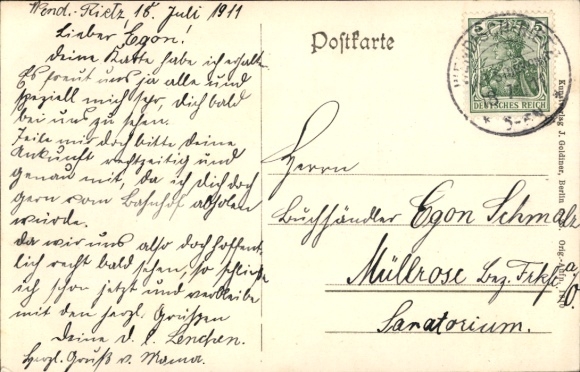 Wend.-Rietz, 18. Juli 1911
Lieber Egon!
Deine Karte habe ich erhalten
Es freut uns ja alle und
speziell mich sehr, Dich bald
bei uns zu sehen.
Teile mir doch bitte Deine
Ankunft rechtzeitig und
genau mit, da ich Dich doch
gern vom Bahnhof abholen
würde.
Da wir uns also doch hoffent-
lich recht bald sehen, so schließe
ich schon jetzt und verbleibe
mit den herzl. Grüßen
Deine d. l. Lenchen.
Herzl. Gruß v. Mama.
Postkarte
5
DEUTSCHES REICH
Herrn
Buchhändler Egon Schmalz
Müllrose Bez. Frkf. a/O.
Sanatorium.
Kunstverlag J. Goldiner, Berlin